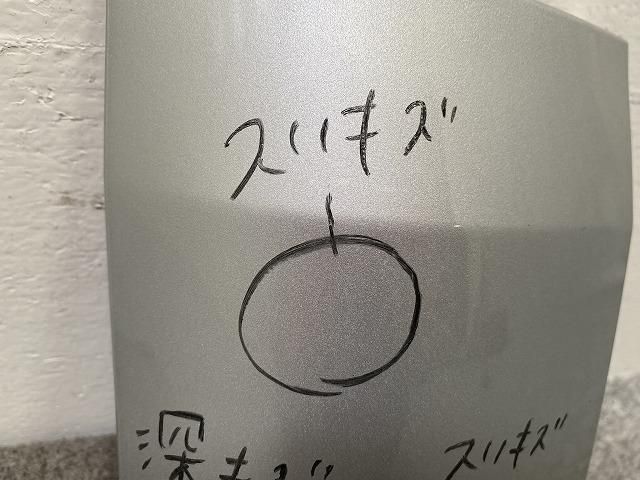 スリキズ
深キズ
スリキズ